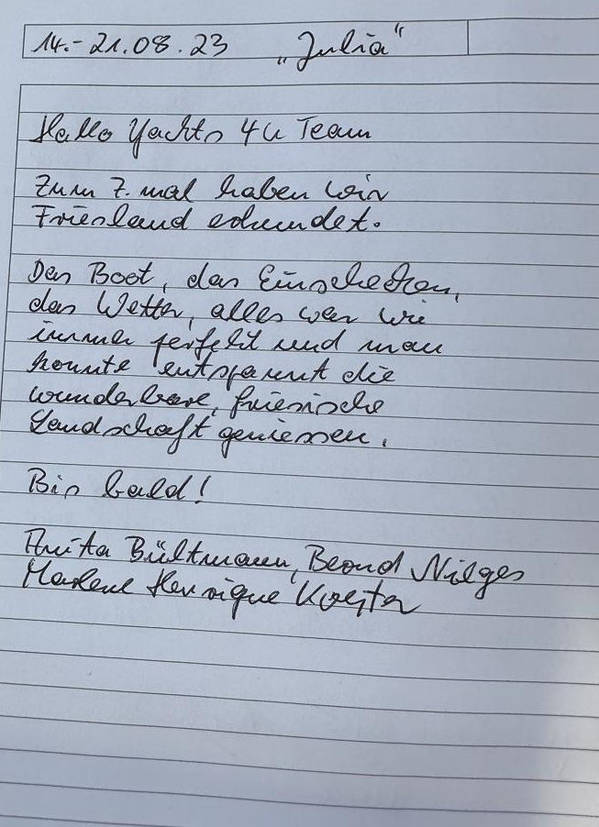 14.-21.08.23 "Julia"
Hallo Yachts 4U Team
Zum 7. mal haben wir
Friesland erkundet.
Das Boot, das Einschecken,
das Wetter, alles war wie
immer perfekt und man
konnte entspannt die
wunderbare, friesische
Landschaft geniessen.
Bis bald!
Anita Bültmann, Bernd Nilges
Marlene Henrique Koester